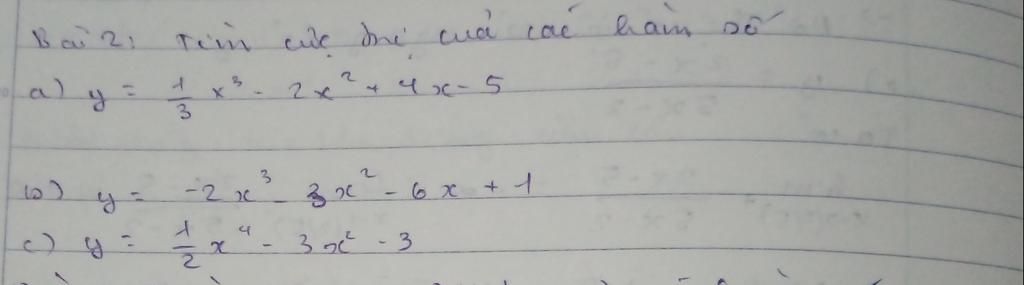 Bài 2: Tìm cực trị của các hàm số
a) y = 1/3 x³ - 2x² + 4x - 5
b) y = -2x³ - 3x² - 6x + 1
c) y = 1/2 x⁴ - 3x² - 3